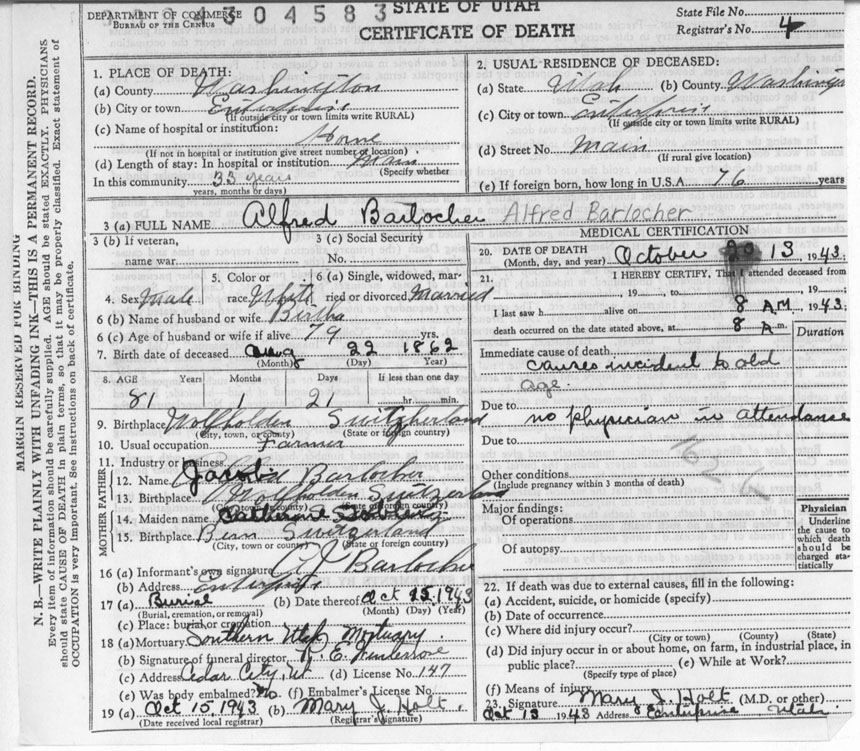 DEPARTMENT OF COMMERCE
BUREAU OF THE CENSUS
304583
STATE OF UTAH
CERTIFICATE OF DEATH
State File No.
Registrar's No. 4
MARGIN RESERVED FOR BINDING
N. B.—WRITE PLAINLY WITH UNFADING INK—THIS IS A PERMANENT RECORD.
Every item of information should be carefully supplied. AGE should be stated EXACTLY. PHYSICIANS
should state CAUSE OF DEATH in plain terms, so that it may be properly classified. Exact statement of
OCCUPATION is very important. See instructions on back of certificate.
1. PLACE OF DEATH:
(a) County Washington
(b) City or town Enterprise
(If outside city or town limits write RURAL)
(c) Name of hospital or institution:
Home
(If not in hospital or institution give street number or location)
(d) Length of stay: In hospital or institution Main
(Specify whether
In this community 33 years
years, months or days)
2. USUAL RESIDENCE OF DECEASED:
(a) State Utah (b) County Washing
(c) City or town Enterprise
(If outside city or town limits write RURAL)
(d) Street No. Main
(If rural give location)
(e) If foreign born, how long in U.S.A 76 years
3 (a) FULL NAME Alfred Barlocher Alfred Barlocher
3 (b) If veteran,
name war
3 (c) Social Security
No.
4. Sex Male
5. Color or
race White
6 (a) Single, widowed, mar-
ried or divorced Married
6 (b) Name of husband or wife Birtha
6 (c) Age of husband or wife if alive 79 yrs.
7. Birth date of deceased Aug 22 1862
(Month) (Day) Year)
8. AGE Years Months Days If less than one day
81 1 21 hr. min.
9. Birthplace Wolfholden Switzherland
(City, town, or county) (State or foreign country)
10. Usual occupation Farmer
11. Industry or business
MOTHER FATHER
12. Name Jacob Barlocher
13. Birthplace Wolfholden Switzerland
(City, town or county) (State or foreign country)
14. Maiden name Catherine
15. Birthplace Bern Switzerland
(City, town, or county) (State or foreign country)
16 (a) Informant's own signature A J Barlocher
(b) Address Enterprise
17 (a) Burial (b) Date thereof Oct 15, 1943
(Burial, cremation, or removal) (Month) (Day) (Year)
(c) Place: burial or cremation
18 (a) Mortuary Southern Utah Mortuary.
(b) Signature of funeral director R. E.
(c) Address Cedar City, Ut (d) License No. 147
(e) Was body embalmed? No (f) Embalmer's License No.
19 (a) Oct 15, 1943 (b) Mary J. Holt.
(Date received local registrar) (Registrar's signature)
MEDICAL CERTIFICATION
20. DATE OF DEATH October 13, 1943.
(Month, day, and year)
21. I HEREBY CERTIFY, That I attended deceased from
, 19 , to , 19
I last saw h alive on 8 AM, 1943;
death occurred on the date stated above, at 8 A m.
Duration
Immediate cause of death
causes incident to old
age.
Due to no physician in attendance
Due to
162
Other conditions
(Include pregnancy within 3 months of death)
Major findings:
Of operations
Of autopsy
Physician
Underline
the cause to
which death
should be
charged sta-
tistically
22. If death was due to external causes, fill in the following:
(a) Accident, suicide, or homicide (specify)
(b) Date of occurrence
(c) Where did injury occur?
(City or town) (County) (State)
(d) Did injury occur in or about home, on farm, in industrial place, in
public place? (e) While at Work?
(Specify type of place)
(f) Means of injury
23. Signature Mary J. Holt (M.D. or other)
Oct 13 1943 Address Enterprise Utah